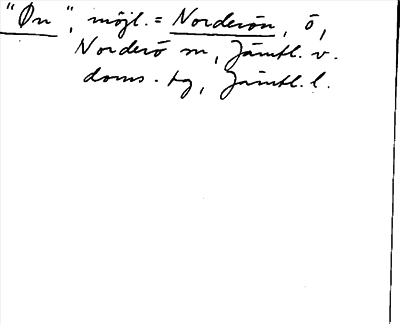 "Øn", möjl. = Norderön, ö,
Norderö sn, Jämtl. v.
doms. tg, Jämtl. l.